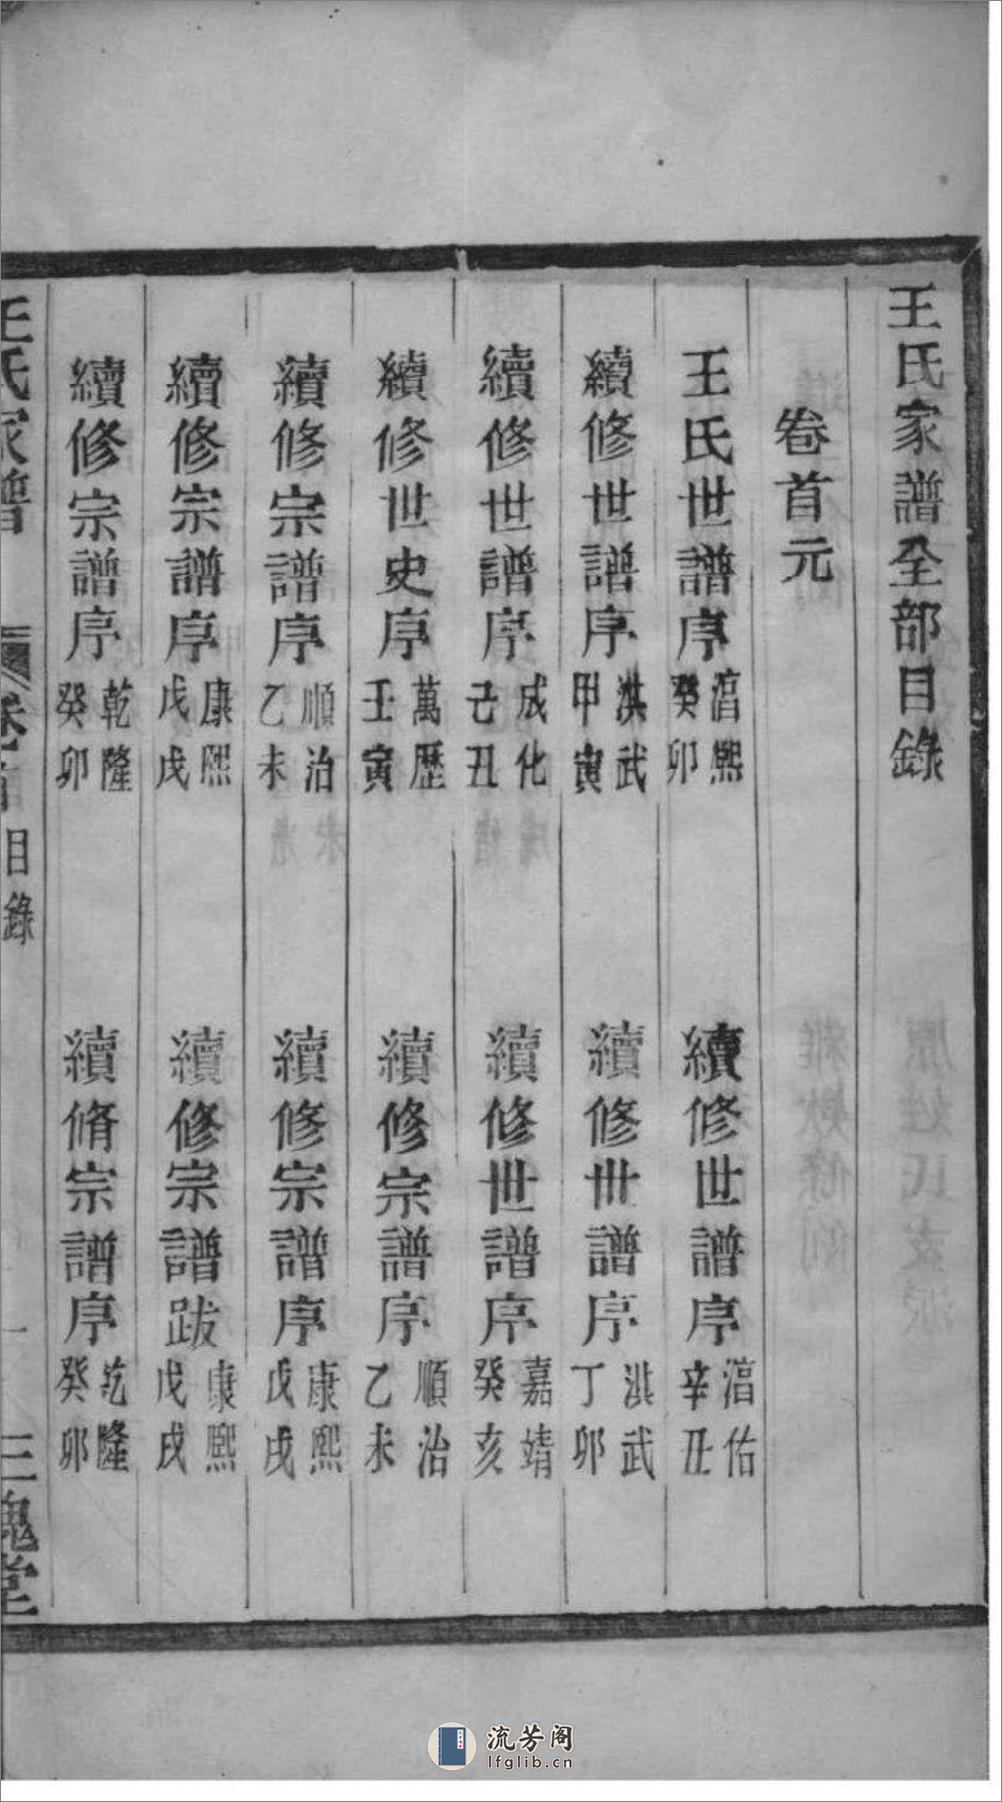 王氏家譜全部目錄
卷首元
王氏世譜序 淳熙癸卯
續修世譜序 淳佑辛丑
續修世譜序 洪武甲寅
續修世譜序 洪武丁卯
續修世譜序 成化己丑
續修世譜序 嘉靖癸亥
續修世史序 萬歷壬寅
續修宗譜序 順治乙未
續修宗譜序 順治乙未
續修宗譜序 康熙戊戌
續修宗譜序 康熙戊戌
續修宗譜跋 康熙戊戌
續修宗譜序 乾隆癸卯
續脩宗譜序 乾隆癸卯
王氏家譜 卷首 目錄 一 三槐堂
流芳阁
lfglib.cn